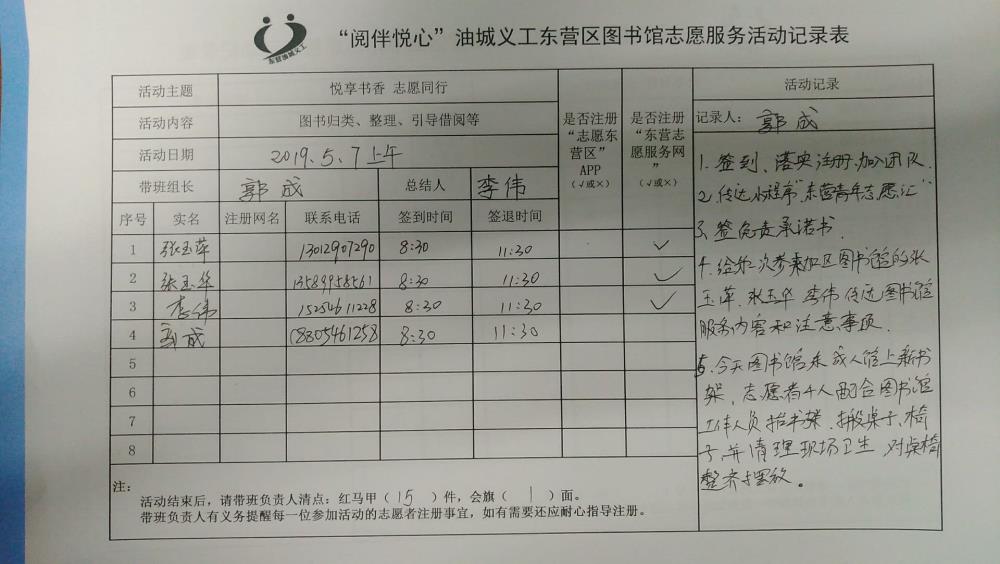 东营油城义工
“阅伴悦心”油城义工东营区图书馆志愿服务活动记录表
活动主题 悦享书香 志愿同行
活动内容 图书归类、整理、引导借阅等
活动日期 2019.5.7上午
带班组长 郭成 总结人 李伟
是否注册“志愿东营区”APP（√或×）
是否注册“东营志愿服务网”（√或×）
序号 实名 注册网名 联系电话 签到时间 签退时间
1 张玉萍 13012907290 8:30 11:30 √
2 张玉华 13589958561 8:30 11:30 √
3 李伟 15254611228 8:30 11:30 √
4 郭成 18805461258 8:30 11:30
5
6
7
8
注：
活动结束后，请带班负责人清点：红马甲（15）件，会旗（1）面。
带班负责人有义务提醒每一位参加活动的志愿者注册事宜，如有需要还应耐心指导注册。
活动记录
记录人：郭成
1.签到、落实注册，加入团队.
2.传达小程序“东营青年志愿汇”
3.签免责承诺书.
4.给第一次参加区图书馆的张
玉萍、张玉华、李伟传达图书馆
服务内容和注意事项.
5.今天图书馆来成人馆上新书
架，志愿者4人配合图书馆
工作人员抬书架、搬桌子、椅
子，并清理现场卫生，对桌椅
整齐摆放。